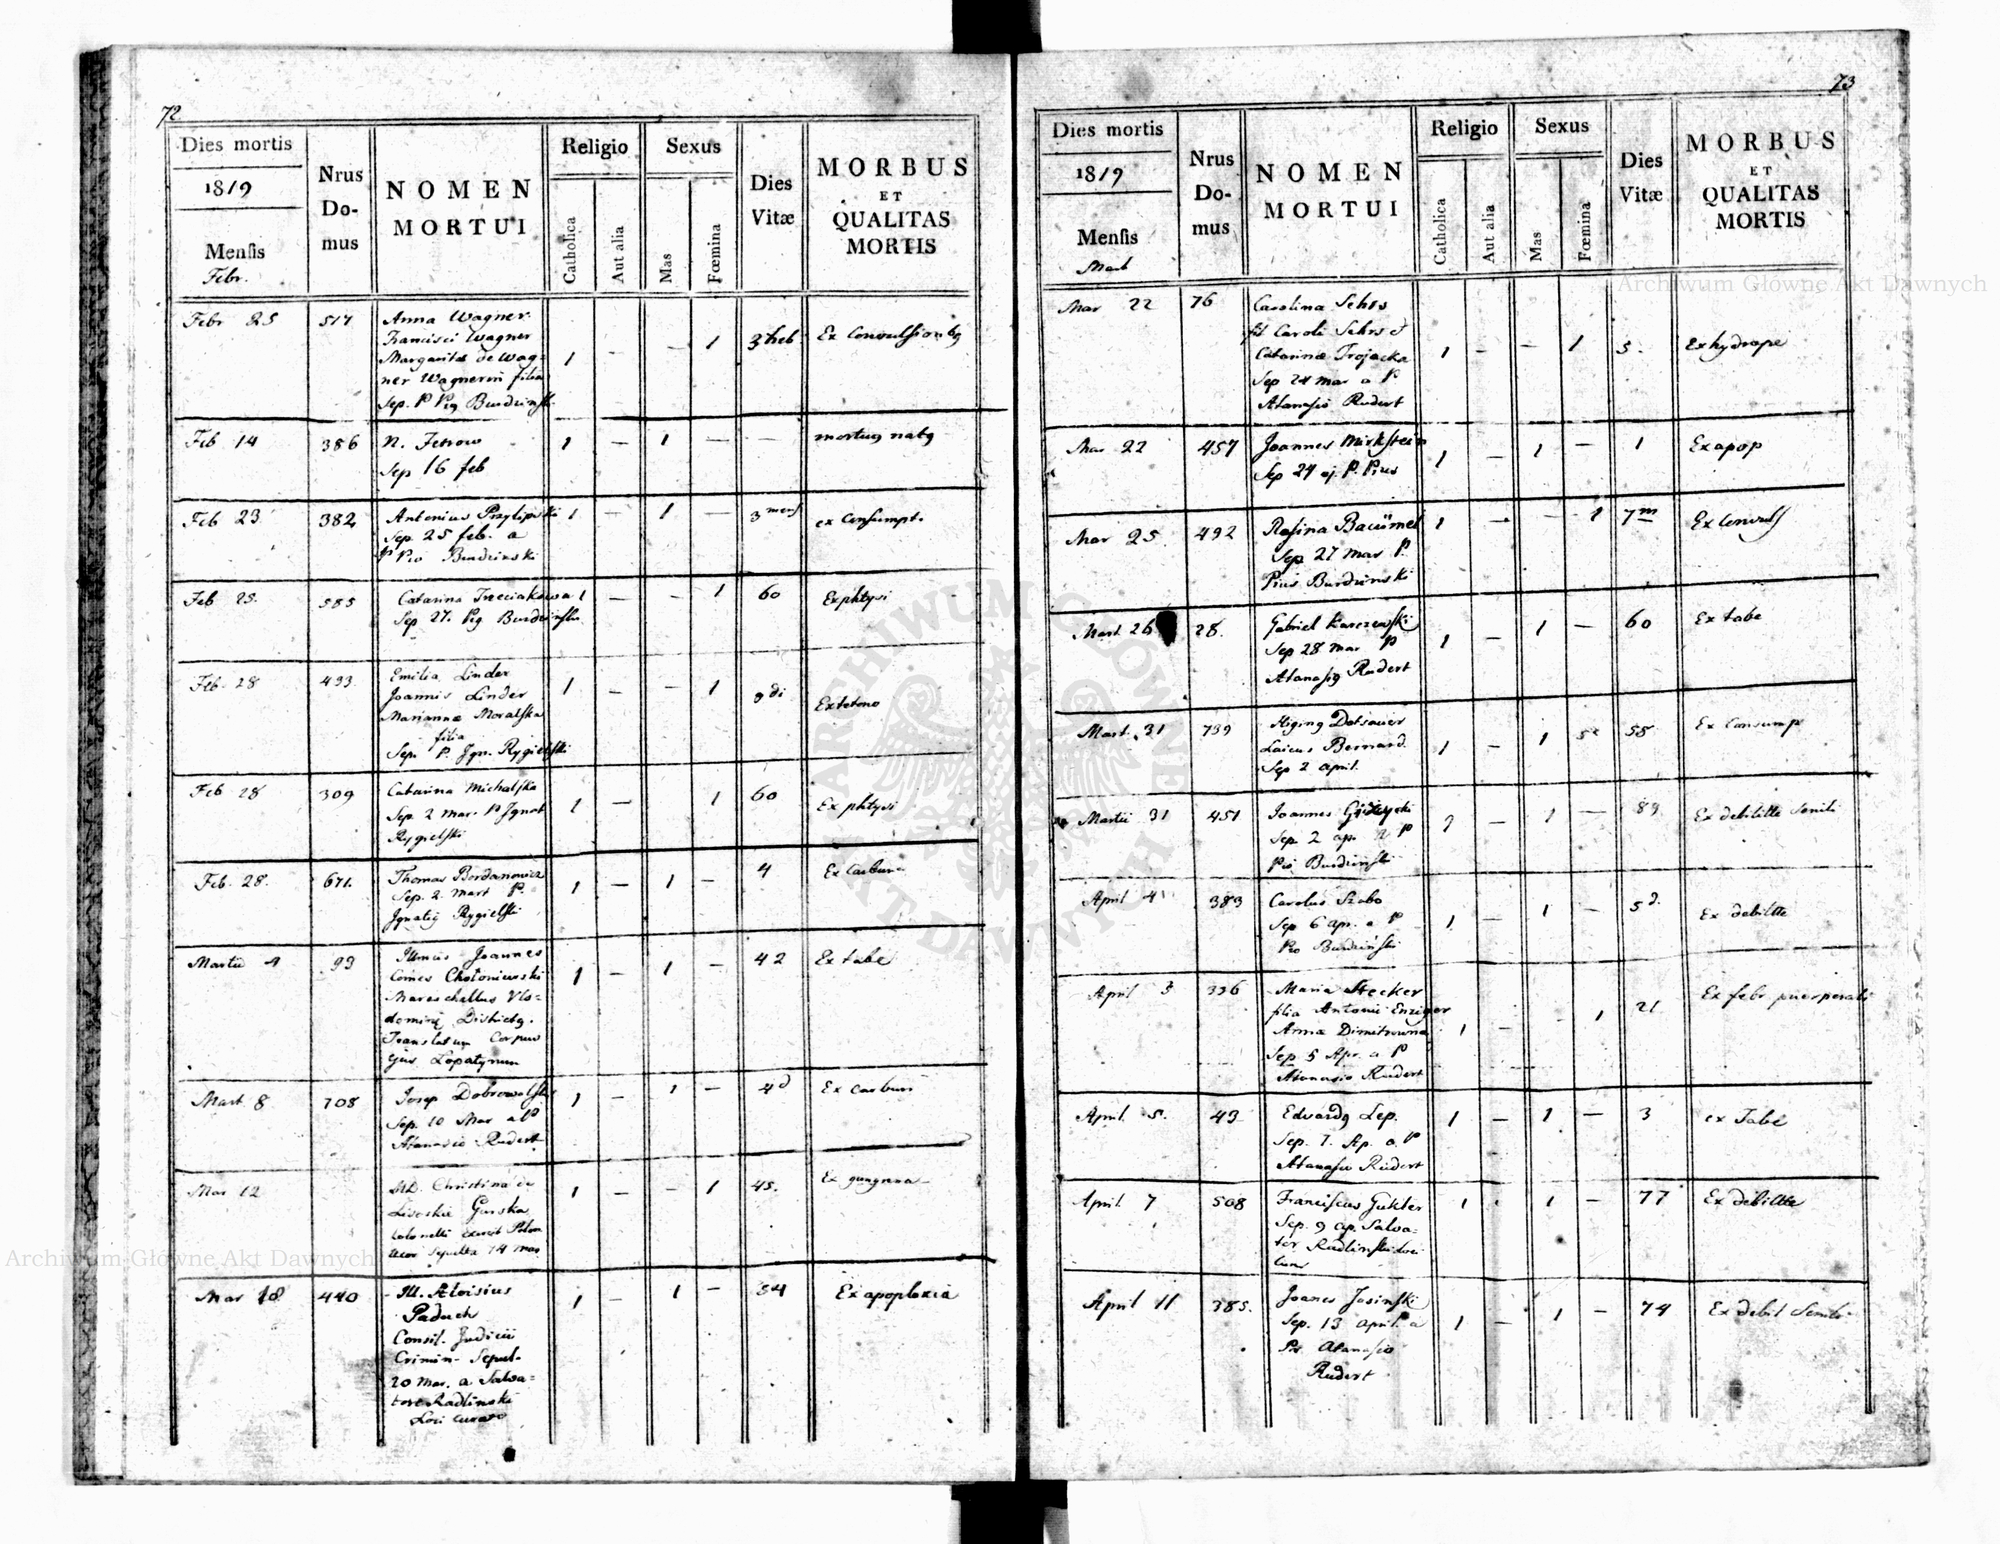 72
Dies mortis
1819
Mensis
Febr.
Nrus
Do-
mus
NOMEN
MORTUI
Religio
Catholica
Aut alia
Sexus
Mas
Fœmina
Dies
Vitæ
MORBUS
ET
QUALITAS
MORTIS
Febr 25 517 Anna Wagner
Francisci Wagner
Margarita de Wag-
ner filia
1 — — 1 3 heb Ex Convulsionbg
Feb 14 386 N.
Sep 16 feb
1 — 1 — — mortug natg
Feb 23 382 Antonius Przylipski
Sep. 25 feb. a
P Pio Burdzinski
1 — 1 — 3 mens ex Consumpt.
Feb 25. 585 Catarina Trzeciakowa
Sep 27. Pig Burdzinski
1 — — 1 60 Ex phtysi
Feb. 28 433 Emilia Linder
Joannis Linder
Mariannæ Moralska
filia
Sep. P. Ign. Rygielski
1 — — 1 9 di Ex tetono
Feb 28 309 Catarina Michalska
Sep. 2 Mar. P Ignat
Rygielski
1 — 1 60 Ex phtysi
Feb. 28. 671. Thomas Bordanowicz
Sep. 2. Mart P.
Ignatig Rygielski
1 — 1 — 4
Martii 1 93 Illmus Joannes
Comes Choloniewski
Mareschallus Vlo-
domiri Districtg.
Translatum Corpus
Ejus Lopatynum
1 — 1 — 42 Ex tabe
Mart 8 708 Josep Dobrowolski
Sep. 10 Mar a P
Atanasio Rudert
1 — 1 — 4 d
Mar 12 Christina de
Gurska
Colonelli exercit Polon
Uxor Sepulta 14 mar
1 — — 1 45. Ex gangrena
Mar 18 440 Ill. Aloisius
Paduch
Consil. Judicii
Crimin- Sepul-
20 Mar. a Salva-
tore Radlinski
Loci curato
1 — 1 — 54 Ex apoplexia
73
Dies mortis
1819
Mensis
Mart
Nrus
Do-
mus
NOMEN
MORTUI
Religio
Catholica
Aut alia
Sexus
Mas
Fœmina
Dies
Vitæ
MORBUS
ET
QUALITAS
MORTIS
Mar 22 76 Carolina Sehrs
fil Caroli Sehrs &
Catarinæ Trojacka
Sep 24 mar a P
Atanasio Rudert
1 — — 1 5. Ex hydrope
Mar 22 457 Joannes Mirkstein
Sep 24 ej. P. Pius
1 — 1 — 1 Ex apop
Mar 25 492 Rosina Bacümel
Sep 27 Mar P.
Pius Burdzinski
1 — — 1 7 m Ex Convuls
Mart 26 28. Gabriel Karczewski
Sep 28 mar P
Atanasig Rudert
1 — 1 — 60 Ex tabe
Mart. 31 739 Higing Dotsauer
Laicus Bernard.
Sep 2 april.
1 — 1 58 Ex Consump
Martii 31 451 Joannes Giżycki
Sep. 2 ap. P
Pio Burdzinski
1 — 1 — 89 Ex debilitte Senili
April 4 383 Carolus Szabo
Sep 6 apr. a P
Pio Burdzinski
1 — 1 — 5 d. Ex debilitte
April 3 336 Maria Stecker
filia Antonii Enziger
Annæ Dimitrowna
Sep. 5 Apr. a P
Atanasio Rudert
1 — — 1 21 Ex febr puerperali
April 5. 43 Edvardg Lep.
Sep. 7. Ap. a P
Atanasio Rudert
1 — 1 — 3 ex Tabe
April 7 508 Franciscus Gukler
Sep. 9 ap. Salva-
tor Radlinski Loci
1 1 — 77 Ex debilitte
April 11 385. Joanes Jasinski
Sep. 13 april. a
Pr. Atanasio
Rudert
1 — 1 — 74 Ex debil Senili
Archiwum Główne Akt Dawnych
ARCHIWUM GŁÓWNE AKT DAWNYCH
Archiwum Główne Akt Dawnych